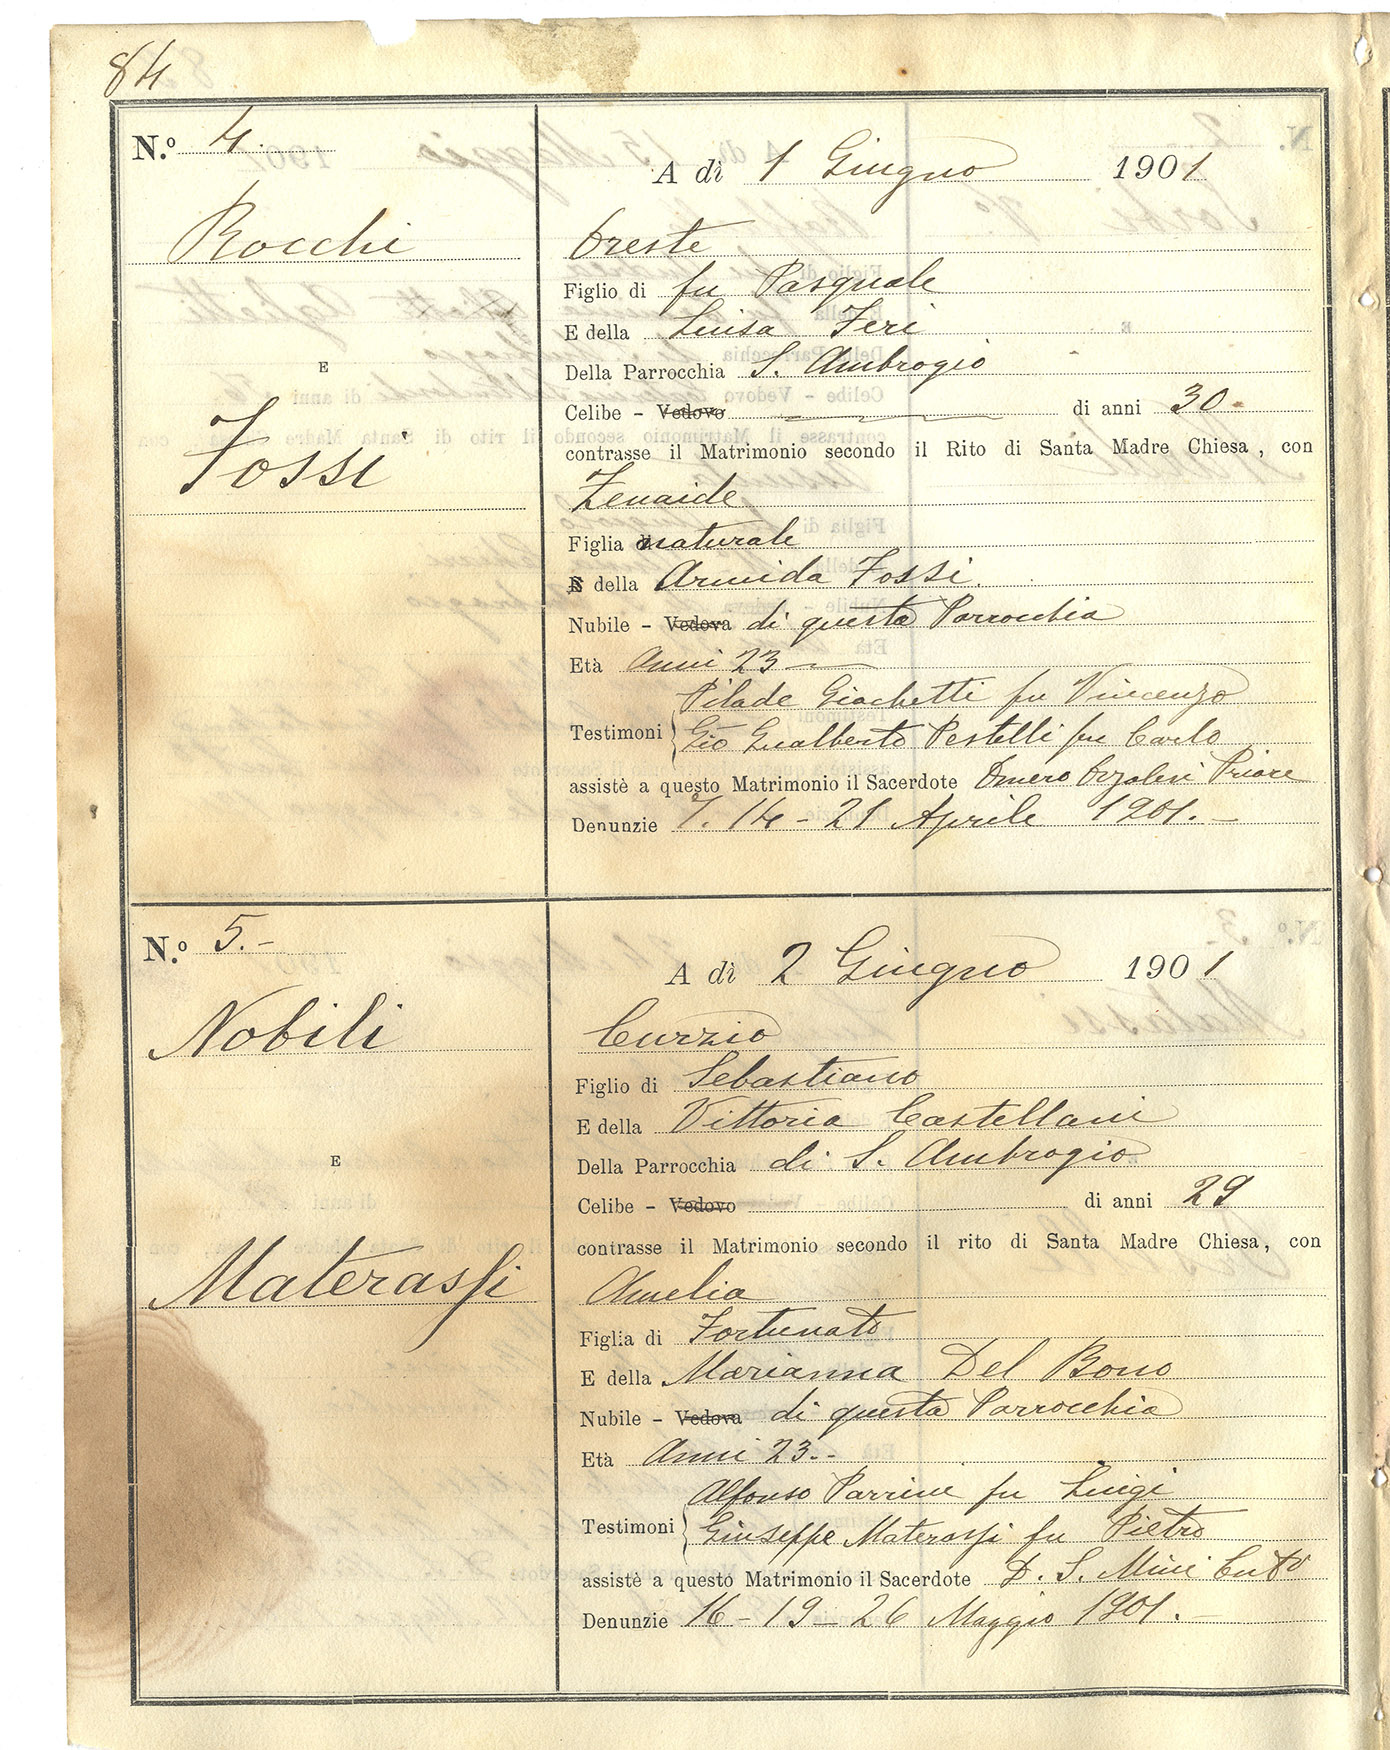 84
N.º 4.
A dì 1 Giugno 1901
Rocchi
Oreste
Figlio di fu Pasquale
E della Luisa Feri
E
Della Parrocchia S. Ambrogio
Celibe - Vedovo di anni 30
Fossi
contrasse il Matrimonio secondo il Rito di Santa Madre Chiesa, con
Zenaide
Figlia naturale
E della Armida Fossi.
Nubile - Vedova di questa Parrocchia
Età Anni 23
Pilade Giachetti fu Vincenzo
Testimoni
Gio Gualberto Pestelli fu Carlo
assistè a questo Matrimonio il Sacerdote Omero Orzalesi Priore
Denunzie 7. 14 - 21 Aprile 1901. -
N.º 5. -
A dì 2 Giugno 1901
Nobili
Curzio
Figlio di Sebastiano
E della Vittoria Castellani
E
Della Parrocchia di S. Ambrogio
Celibe - Vedovo di anni 29
contrasse il Matrimonio secondo il rito di Santa Madre Chiesa, con
Materassi
Amelia
Figlia di Fortunato
E della Marianna Del Bono
Nubile - Vedova di questa Parrocchia
Età Anni 23. -
Alfonso Parrini fu Luigi
Testimoni
Giuseppe Materassi fu Pietro
assistè a questo Matrimonio il Sacerdote D. S. Mini
Denunzie 16 - 19 - 26 Maggio 1901. -